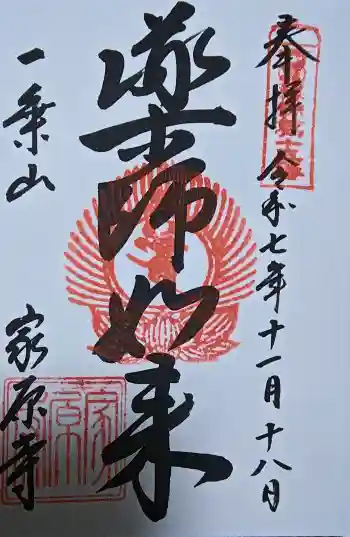 奉拝 令和七年十一月十八日
薬師如来
一乗山
家原寺